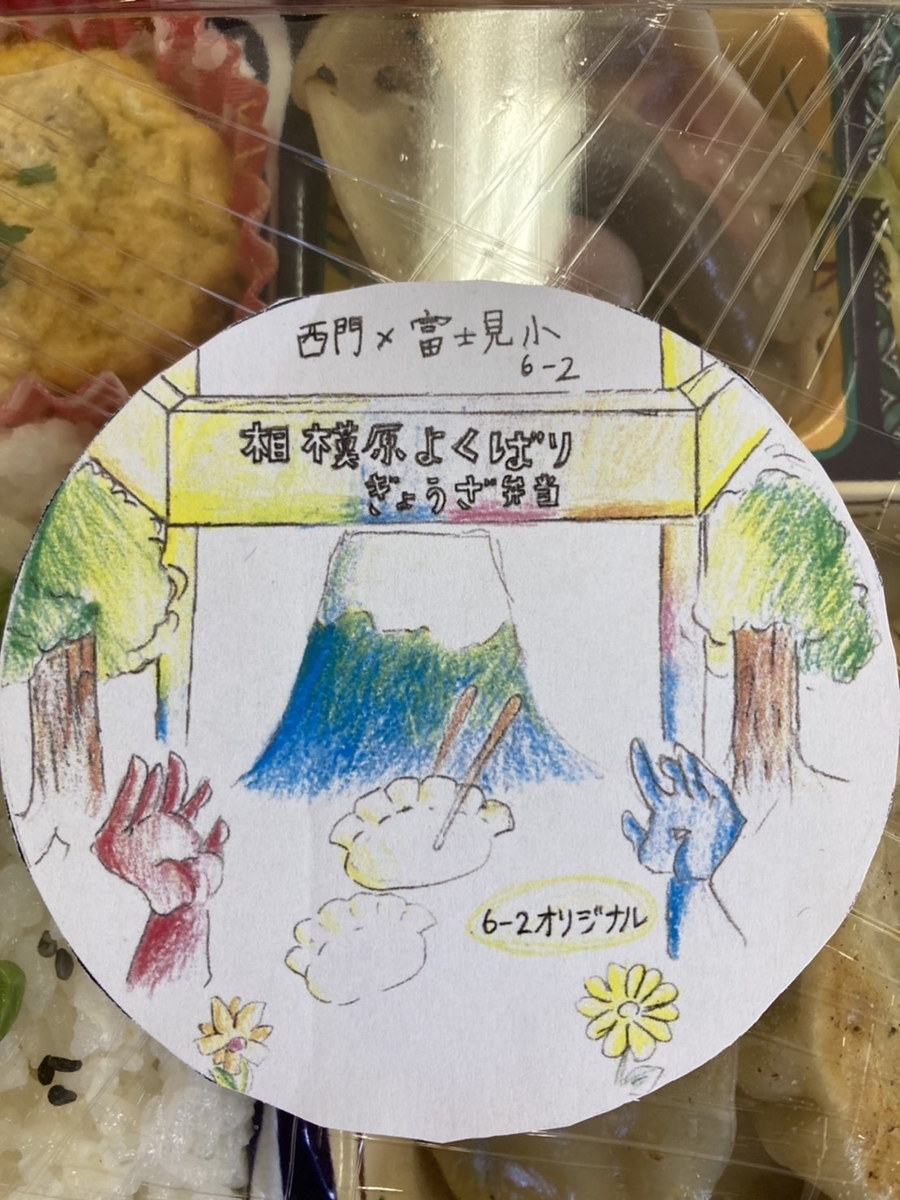 西門×富士見小
6-2
相模原よくばり
ぎょうざ弁当
6-2オリジナル